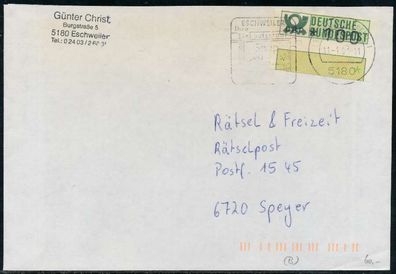 Günter Christ
Burgstraße 5
5180 Eschweiler
Tel.: 0 24 03 /
ESCHWEILER
DEUTSCHE
BUNDESPOST
5180
Rätsel & Freizeit
Rätselpost
Postf. 15 45
6720 Speyer
(B)
60,-